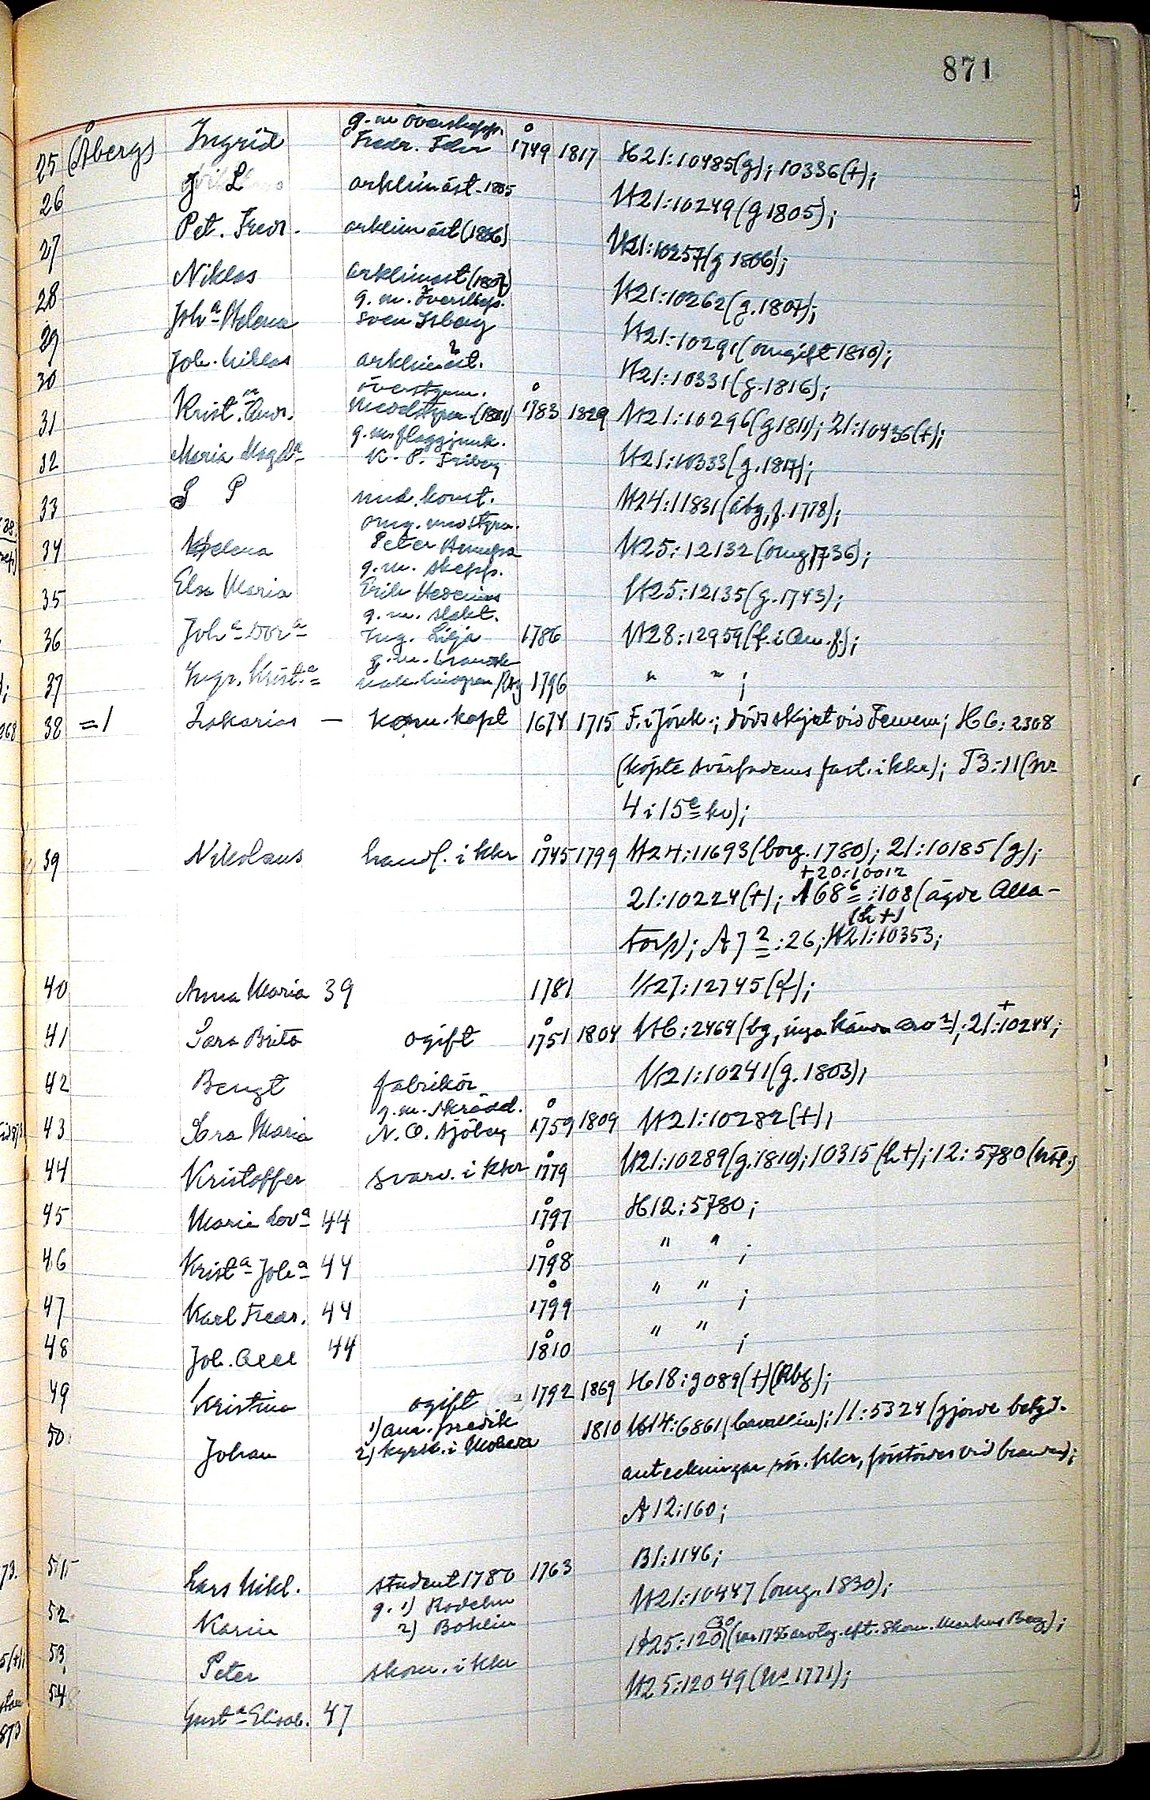 871
25 Åbergs Ingrid g. m överskepp. Fredr. 1749 1817 H21:10485(g); 10336(+);
26 L arklimäst. 1805 H21:10249(g 1805);
27 Pet. Fredr. arklimäst(1806) H21:10257(g 1806);
28 Niklas arklimäst(1807) H21:10262(g. 1807);
29 Joha Helena g. m. överskep. Sven Isberg H21:10291(omgift 1810);
30 Joh. Niklas arklimäst. H21:10331(g. 1816);
31 Krist. överstyrm. (1811) 1783 1829 H21:10296(g 1811); 21:10436(+);
32 Maria Magda g. m. flaggjunk. K. P. Friberg H21:10333(g. 1817);
33 S P und. konst. H24:11831(åbg, f. 1778);
34 Helena omg. Peter H25:12132(omg 1736);
35 Elsa Maria g. m. skepp. Erik Hedenius H25:12135(g. 1743);
36 Joha Dora g. m. Ing. Lilja 1786 H28:12959(f. i Am. f.);
37 Ingr. Krista g. m. 1796 " " ;
38 =1 Zakarias — kom. kapt 1674 1715 F. i Jönk.; dödsskjut vid Femern; H6:2308
(köpte svärfaderns fast. i kkr); J3:11(nr
4 i 15e kv);
39 Nikolaus handl. i kkr 1745 1799 H24:11693(borg. 1780); 21:10185(g);
+20:10012
21:10224(+); A68c:108(ägde Alla-
(h+)
torp); A72:26; H21:10353;
40 Anna Maria 39 1781 H27:12745(f);
41 Sara Brita ogift 1751 1804 H6:2464(bg, inga kända arv); 21:10244;
42 Bengt fabrikör H21:10241(g. 1803);
43 Sara Maria g. m. skrädd. N. O. Sjöberg 1759 1809 H21:10282(+);
44 Kristoffer svarv. i kkr 1779 H21:10289(g. 1810); 10315(h+); 12:5780
45 Maria Lova 44 1797 H12:5780;
46 Krista Joha 44 1798 " " ;
47 Karl Fredr. 44 1799 " " ;
48 Joh. Axel 44 1810 " " ;
49 Kristina ogift 1792 1869 H18:9089(+)(Rbg);
50 Johan 1) am. predik 2) kyrkh. i Moheda 1810 H14:6861(Cavallin); 11:5324(gjorde betyd.
anteckningar rör. kkr, förstördes vid branden);
A12:160;
51 Lars Nikl. student 1780 1763 B1:1146;
52 Karin g. 1) 2) Bohlin H21:10447(omg. 1830);
53 Peter skom. i kkr H25:120 (var 1756 arvtag. eft. skom. Markus Berg);
54 Gusta Elisab. 47 H25:12049(No 1771);